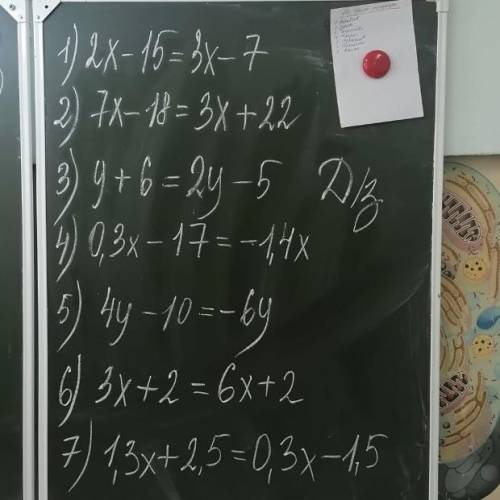 1) 2x-15=3x-7
2) 7x-18=3x+22
3) y+6=2y-5
Д/з
4) 0,3x-17=-1,4x
5) 4y-10=-6y
6) 3x+2=6x+2
7) 1,3x+2,5=0,3x-1,5